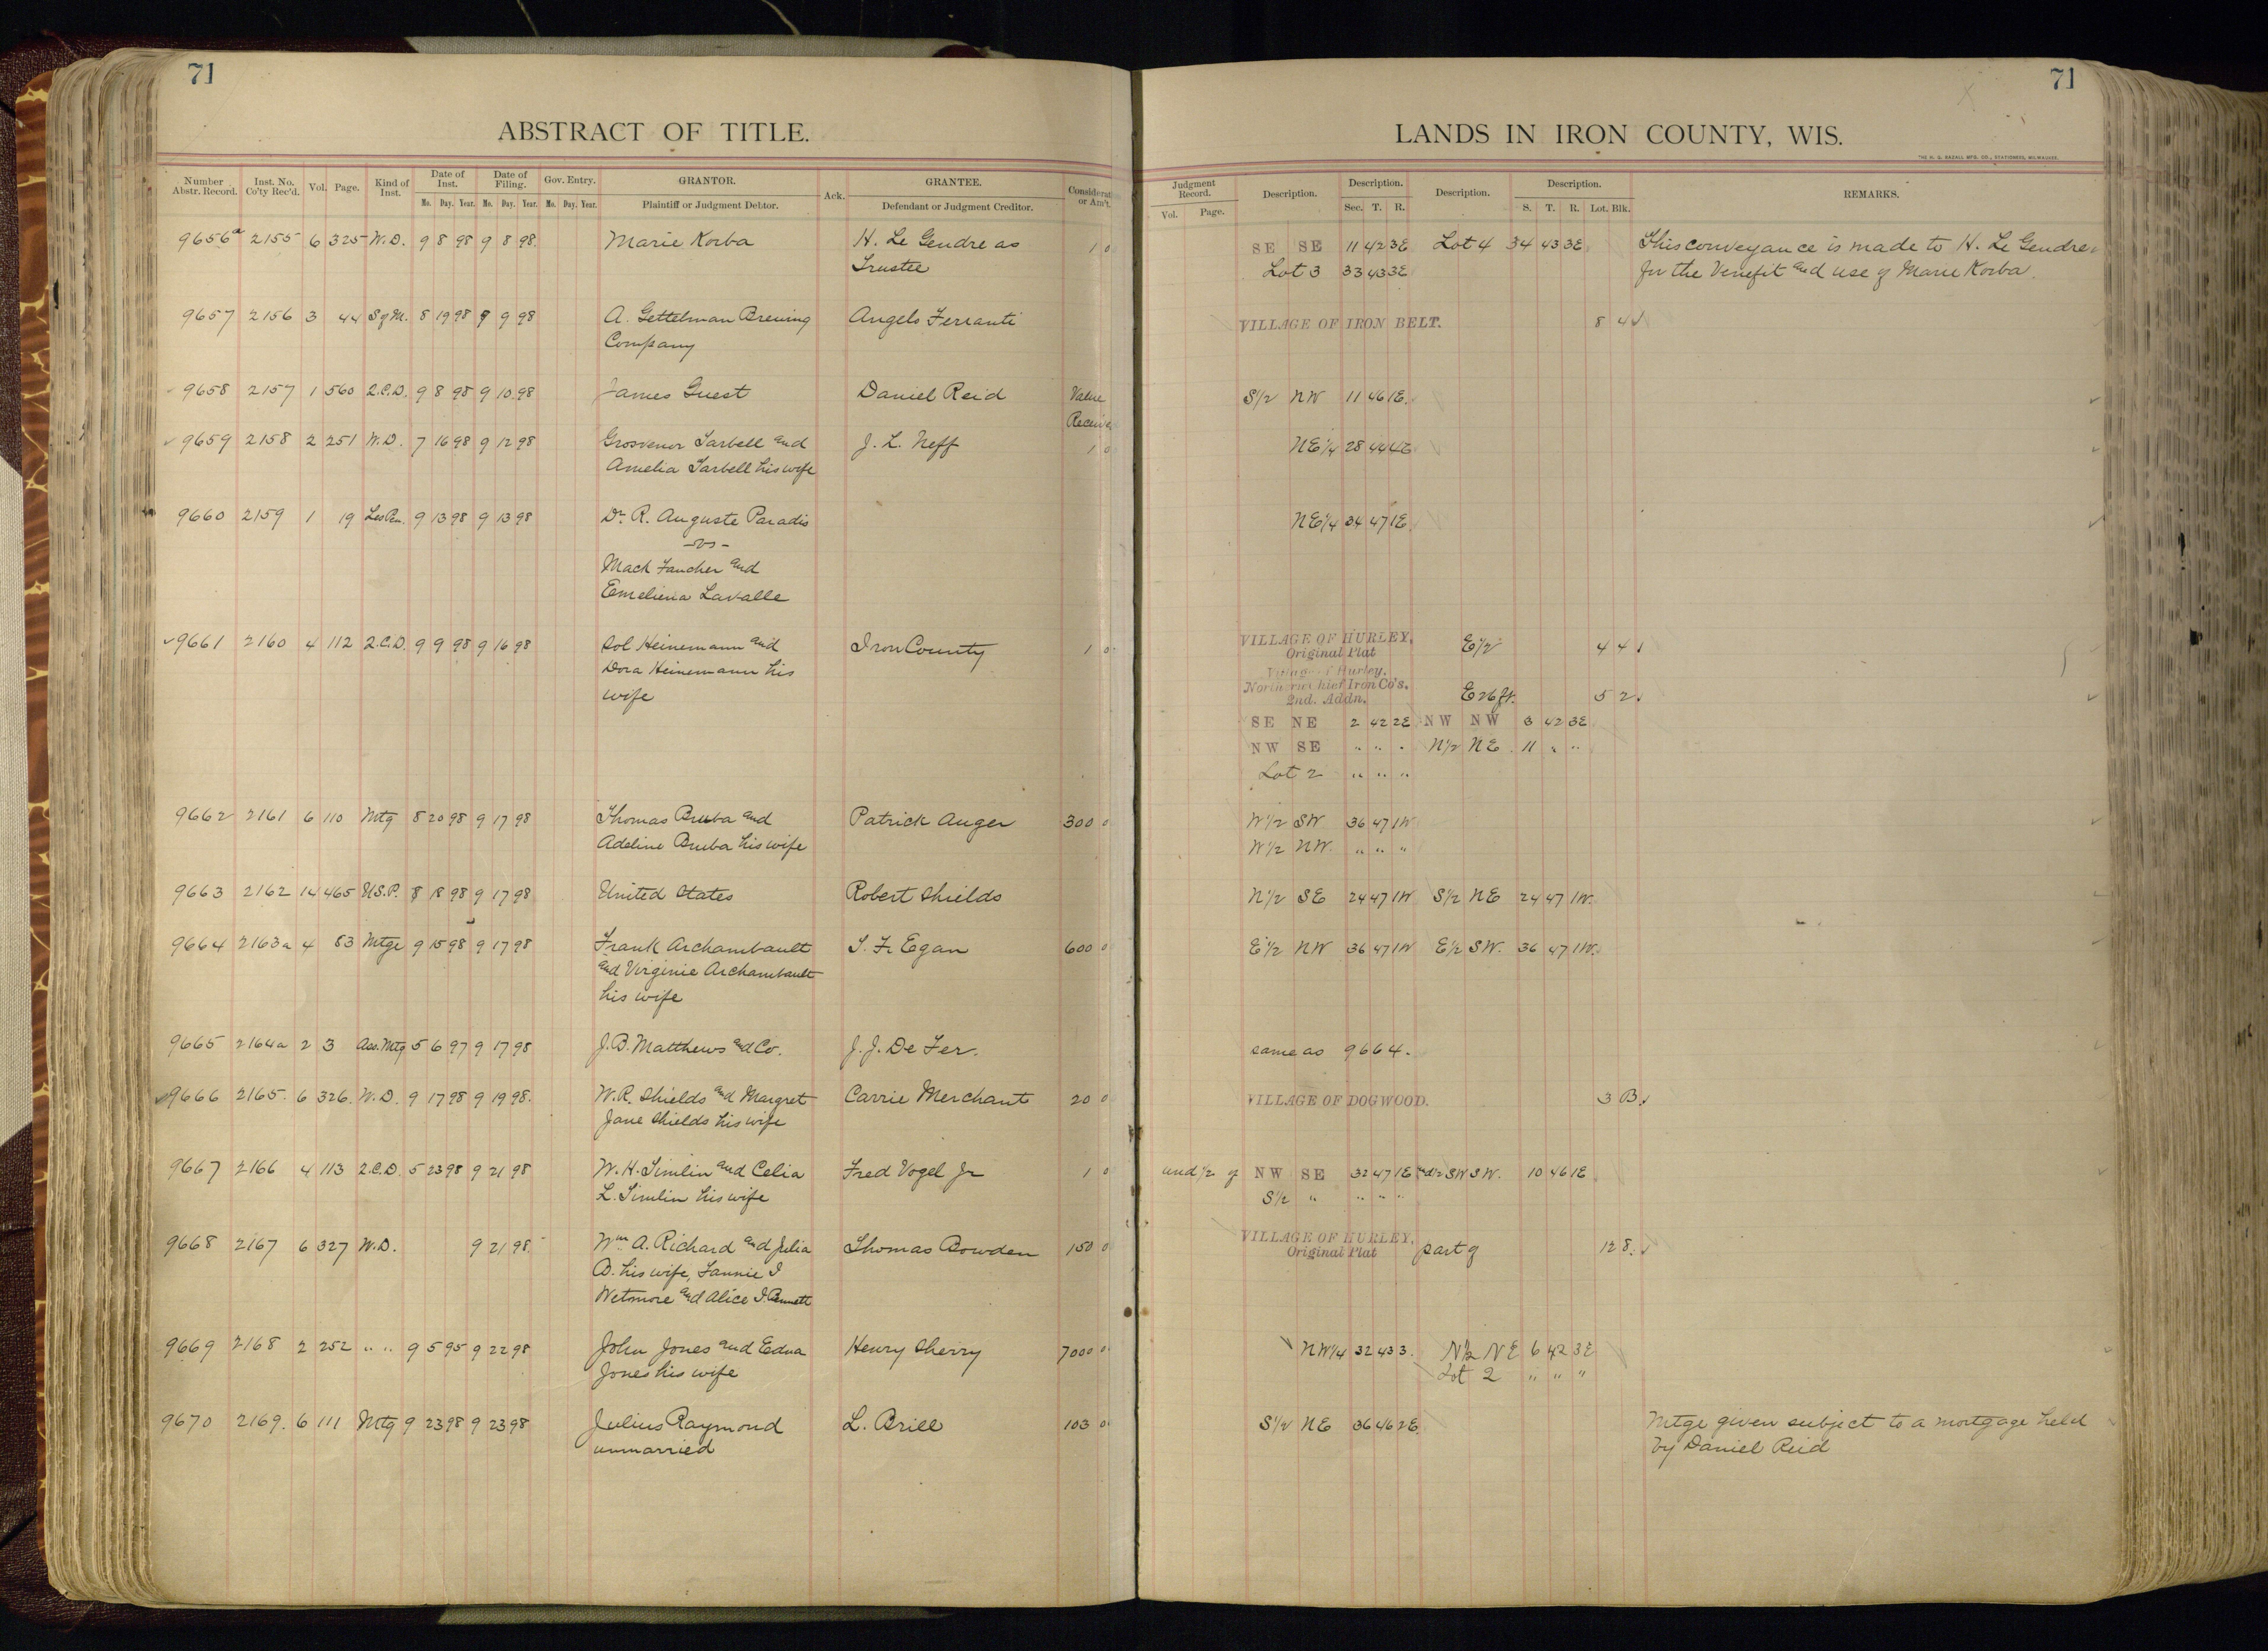 71
ABSTRACT OF TITLE.
Number Abstr. Record. Inst. No. Co'ty Rec'd. Vol. Page. Kind of Inst. Date of Inst. Mo. Day. Year. Date of Filing. Mo. Day. Year. Gov. Entry. Mo. Day. Year. GRANTOR. Plaintiff or Judgment Debtor. Ack. GRANTEE. Defendant or Judgment Creditor. Considerat or Am't.
9656a 2155 6 325 W.D. 9 8 98 9 8 98 Marie Korba H. Le Gendre as 1 0
Trustee
9657 2156 3 44 S of M. 8 19 98 9 9 98 A. Gettelman Brewing Angelo Ferranti
Company
9658 2157 1 560 2.C.D. 9 8 98 9 10 98 James Guest Daniel Reid Value
Receive
9659 2158 2 251 W.D. 7 16 98 9 12 98 Grosvenor Tarbell and J. L. Neff 1 0
Amelia Tarbell his wife
9660 2159 1 19 Les Pen. 9 13 98 9 13 98 Dr R. Auguste Paradis
-vs-
Mack Faucher and
Emeliena Lavalle
9661 2160 4 112 2.C.D. 9 9 98 9 16 98 Sol Heinemann and Iron County 1 0
Dora Heinemann his
wife
9662 2161 6 110 Mtg 8 20 98 9 17 98 Thomas Bruba and Patrick Auger 300 0
Adeline Bruba his wife
9663 2162 14 465 U.S.P. 8 18 98 9 17 98 United States Robert Shields
9664 2163a 4 83 Mtge 9 15 98 9 17 98 Frank Archambault T. F. Egan 600 0
and Virginie Archambault
his wife
9665 2164a 2 3 Ass. Mtg 5 6 97 9 17 98 J.B. Matthews and Co. J. J. De Fer.
9666 2165. 6 326. W.D. 9 17 98 9 19 98. W.R. Shields and Margret Carrie Merchant 20 0
Jane Shields his wife
9667 2166 4 113 2.C.D. 5 23 98 9 21 98 W. H. Timlin and Celia Fred Vogel Jr 1 0
L. Timlin his wife
9668 2167 6 327 W.D. 9 21 98. Wm A. Richard and Julia Thomas Bowden 150 0
B. his wife, Fannie I
Wetmore and Alice I. Bennett
9669 2168 2 252 " " 9 5 95 9 22 98 John Jones and Edna Henry Sherry 7000 0
Jones his wife
9670 2169. 6 111 Mtg 9 23 98 9 23 98 Julius Raymond L. Brill 103 0
unmarried
71
LANDS IN IRON COUNTY, WIS.
THE H. G. RAZALL MFG. CO., STATIONERS, MILWAUKEE.
Judgment Record. Vol. Page. Description. Description. Sec. T. R. Description. Description. S. T. R. Lot. Blk. REMARKS.
SE SE 11 42 3E Lot 4 34 43 3E This conveyance is made to H. Le Gendre
Lot 3 33 43 3E for the Venefit and use of Marie Korba.
VILLAGE OF IRON BELT. 8 4
S1/2 NW 11 46 1E.
NE1/4 28 44 4E
NE1/4 34 47 1E
VILLAGE OF HURLEY, E1/2 4 4
Original Plat
Village of Hurley.
Northern Chief Iron Co's. E 26 ft. 5 2
2nd. Addn.
SE NE 2 42 2E NW NW 3 42 3E
NW SE " " " N1/2 NE 11 " "
Lot 2 " " "
W1/2 SW 36 47 1W
W1/2 NW. " " "
N1/2 SE 24 47 1W S1/2 NE 24 47 1W.
E1/2 NW 36 47 1W E1/2 SW. 36 47 1W.
same as 9664.
VILLAGE OF DOGWOOD. 3 B.
und 1/2 of NW SE 32 47 1E SW SW. 10 46 1E
S1/2 " " " "
VILLAGE OF HURLEY. part of 12 8.
Original Plat
NW1/4 32 43 3. N1/2 NE 6 42 3E
Lot 2 " " "
S1/2 NE 36 46 2E. Mtge given subject to a mortgage held
by Daniel Reid